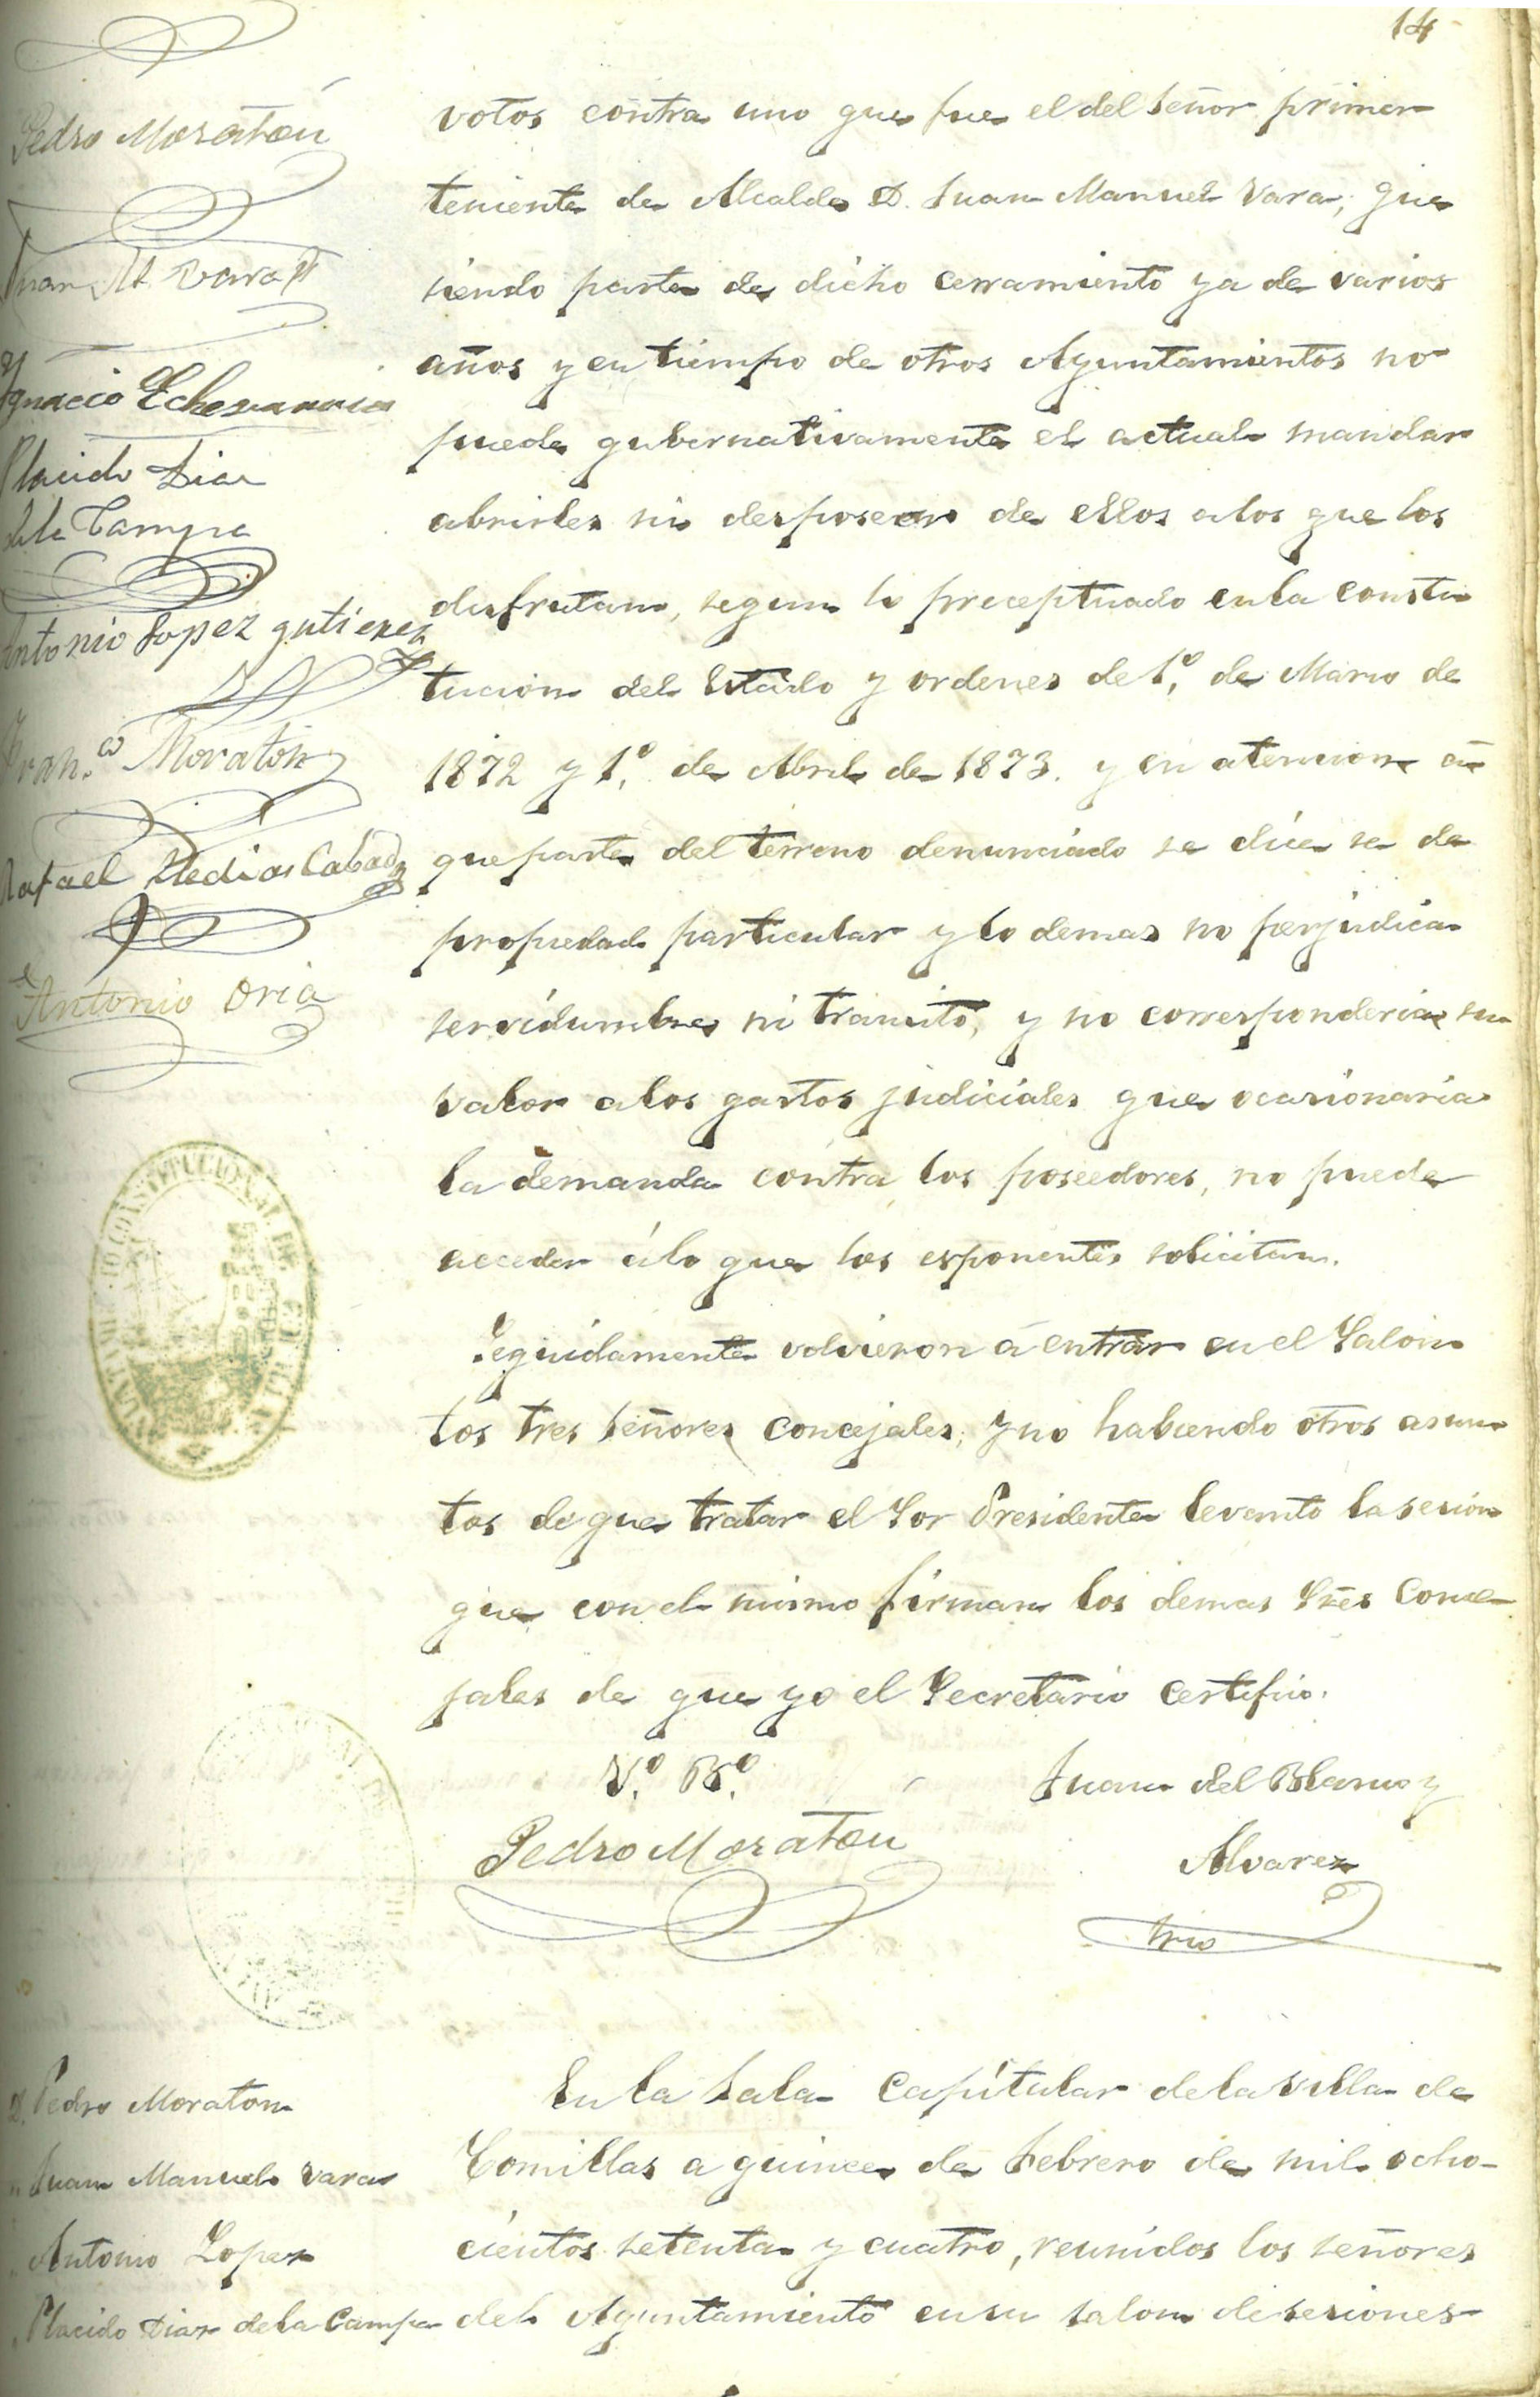 14
votos contra uno que fue el del Señor primer
teniente de Alcalde D. Juan Manuel Vara; que
siendo parte de dicho cerramiento ya de varios
años y en tiempo de otros Ayuntamientos no
puede gubernativamente el actual mandar
abrirles ni desposeer de ellos a los que los
disfrutan, segun lo preceptuado en la consti
tucion del Estado y ordenes de 1º de Marzo de
1872 y 1º de Abril de 1873. y en atencion a
que parte del terreno denunciado se dice se de
propiedad particular y lo demas no perjudica
servidumbre ni transito, y no corresponderia su
valor a los gastos judiciales que ocasionaria
la demanda contra los poseedores, no puede
acceder á lo que los esponentes solicitan.
Seguidamente volvieron á entrar en el Salon
los tres Señores Concejales; y no habiendo otros asun
tos de que tratar el Sor Presidente levantó la sesion
que con el mismo firman los demas Sres Conce
jales de que yo el Secretario certifico.
Vº Bº
Pedro Moraton
Juan del Blanco y
Alvarez
Srio
Pedro Moraton
Juan M. Vara
Ygnacio Echevarria
Placido Diaz
de la Campa
Antonio Lopez gutierez
Fran.co Moraton
Rafael Pedias Cabada
Antonio Oria
AYUNTAMIENTO CONSTITUCIONAL DE
D. Pedro Moraton
" Juan Manuel Vara
" Antonio Lopez
" Placido Diaz de la Campa
En la Sala Capitular de la villa de
Comillas a quince de Febrero de mil ocho-
cientos setenta y cuatro, reunidos los señores
del Ayuntamiento en su salon de sesiones